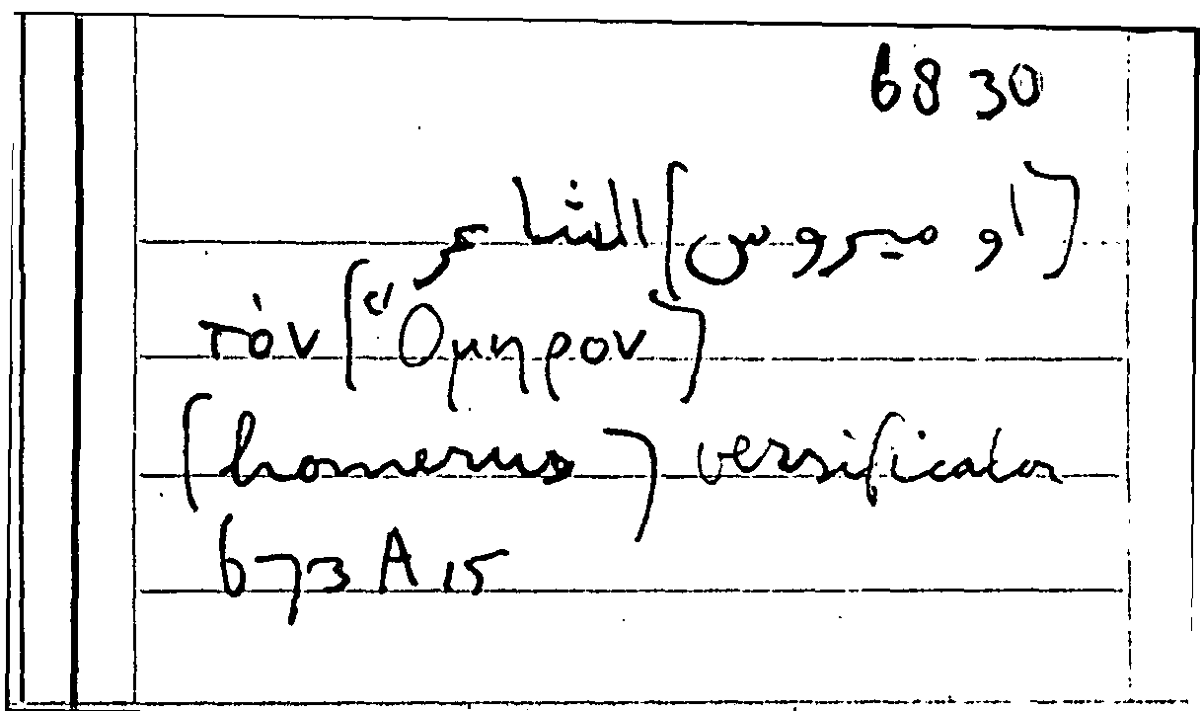 6830
[اوميروس] الشاعر
τὸν [Ὅμηρον]
[homerus] versificator
673 A 15